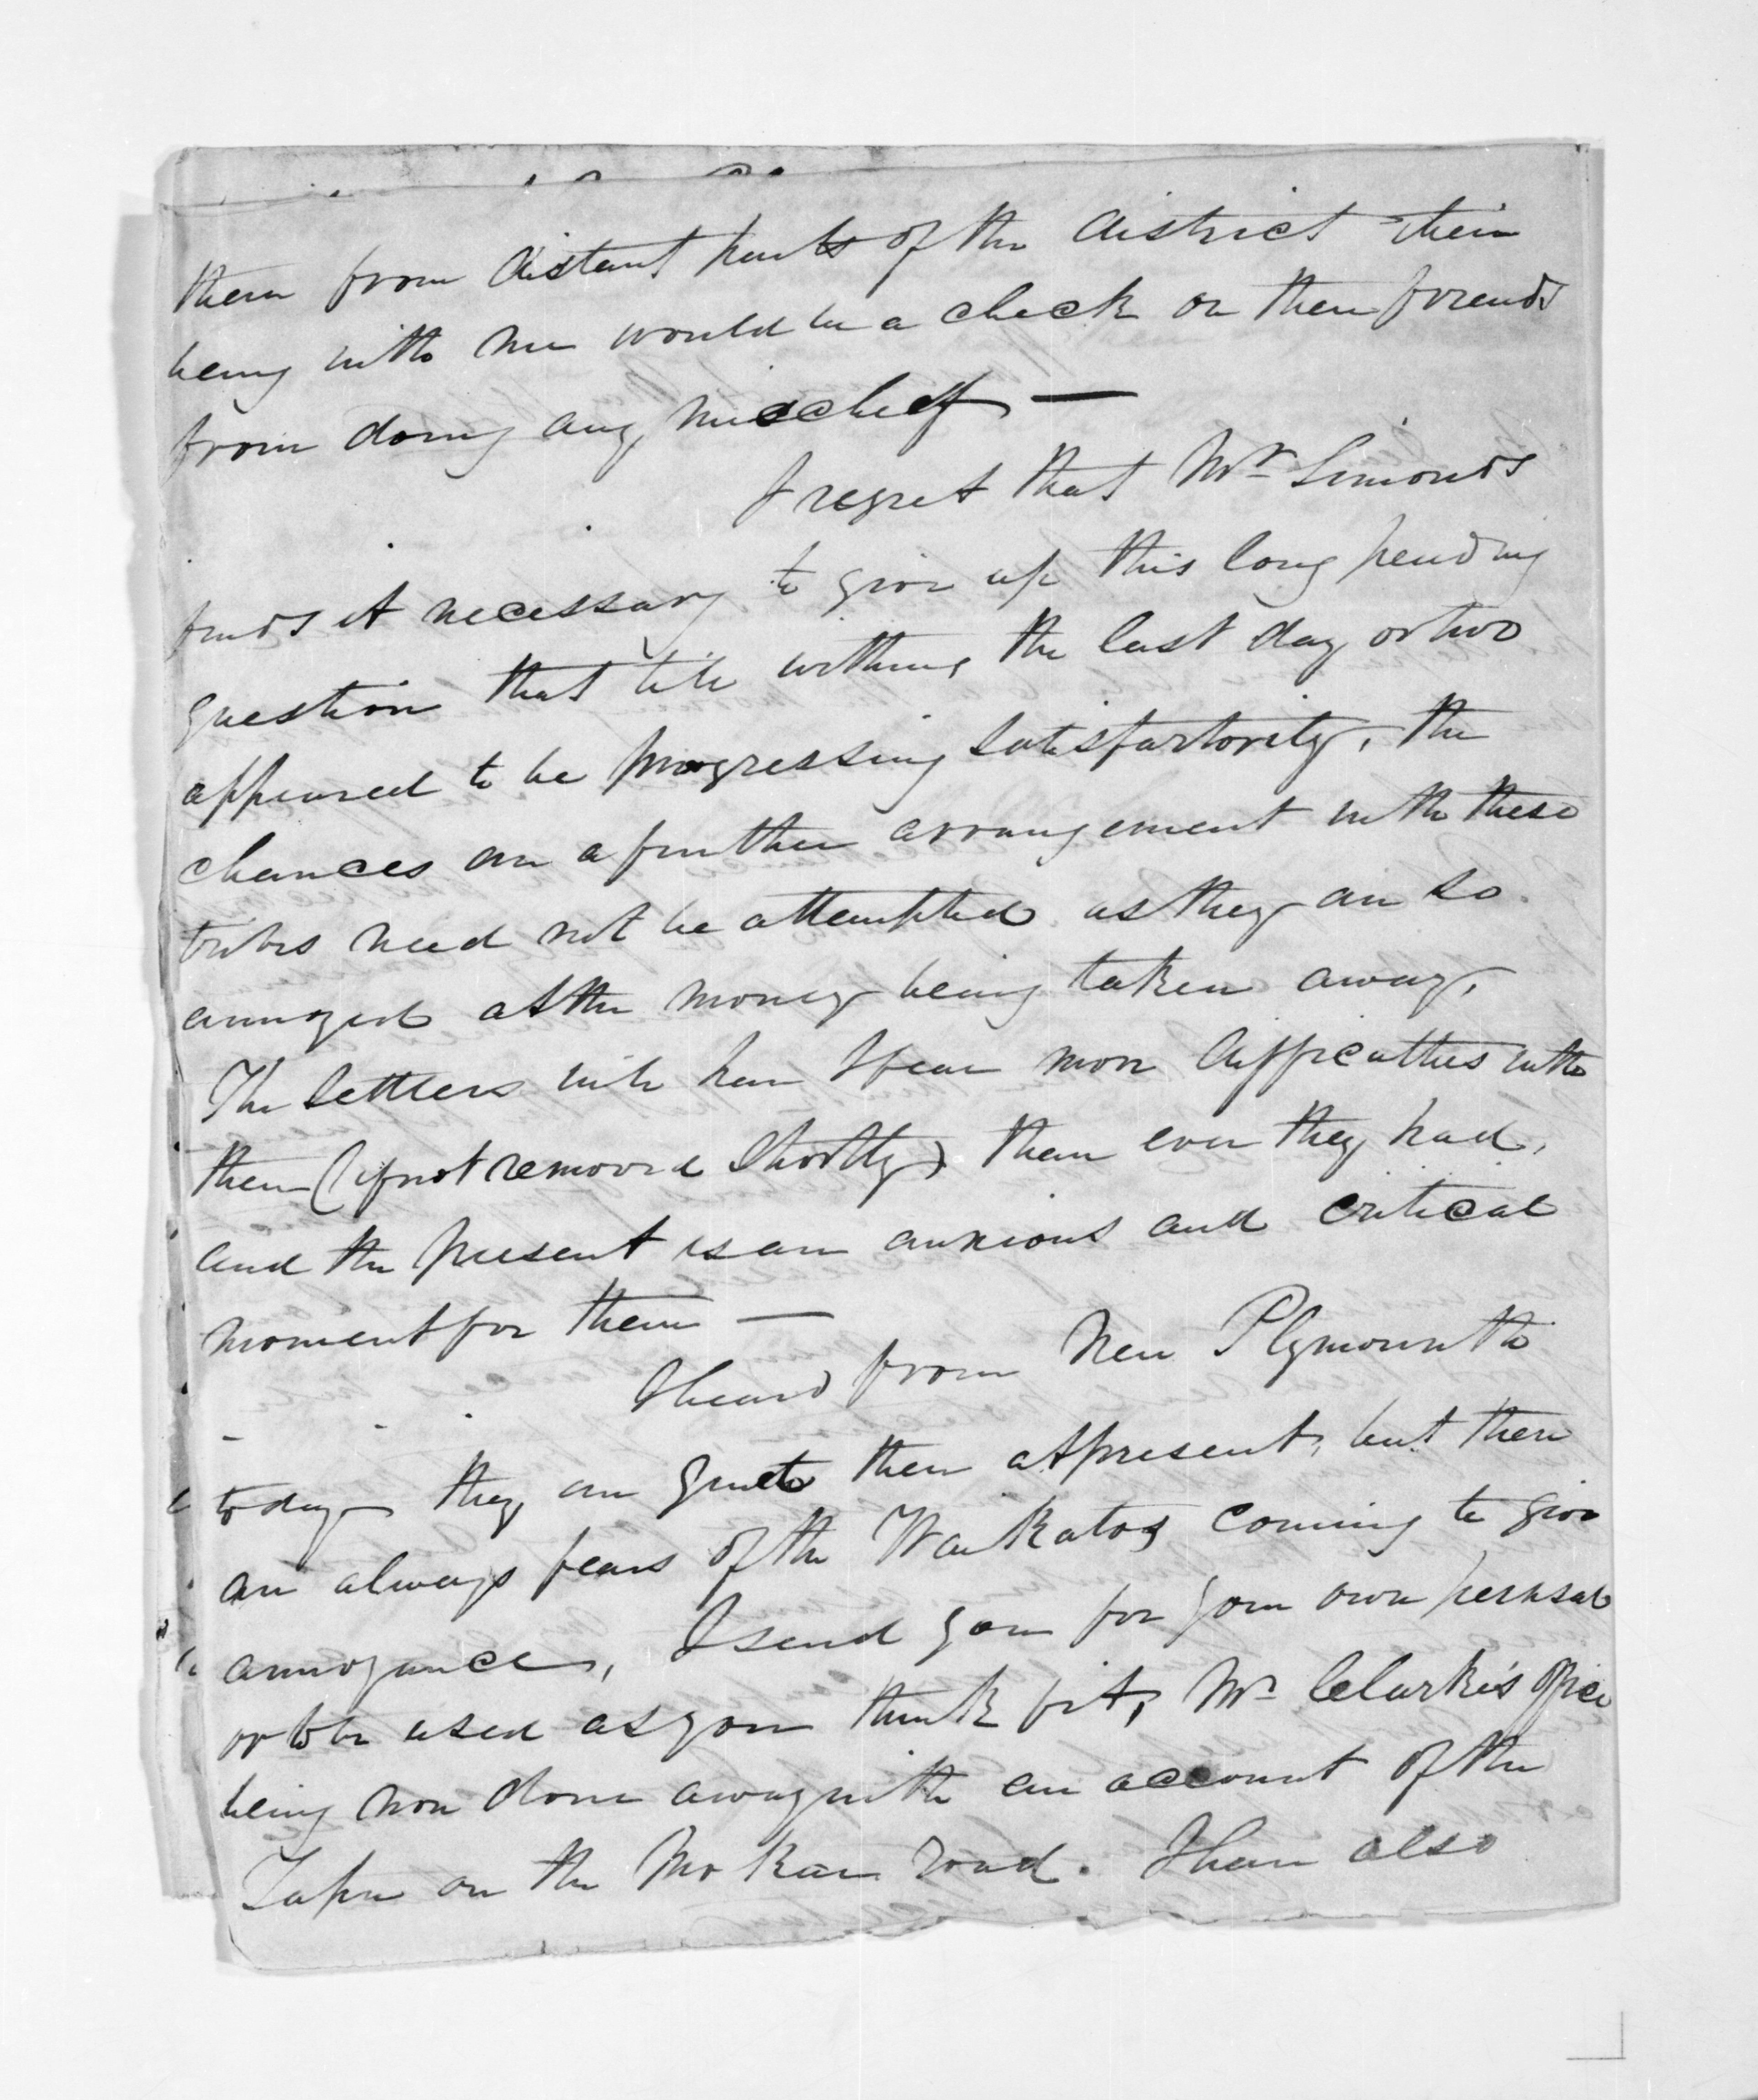 them from distant parts of the district their
being with me would be a check on their friends
from doing any mischief —
I regret that Mr Simonds
finds it necessary to give up this long pending
question that till within the last day or two
appeared to be progressing satisfactorily, the
chances are a further arrangement with these
tribes need not be attempted as they are so
annoyed at the money being taken away,
The settlers will have I fear more difficulties with
them (if not removed shortly) than ever they had,
and the present is an anxious and critical
moment for them —
I heard from New Plymouth
today they are quiet there at present, but there
are always fears of the Waikatos coming to give
annoyance, I send you for your own perusal
or to be used as you think fit, Mr Clarke's office
being now done away with an account of the
Tapu on the Mokau road. I have also